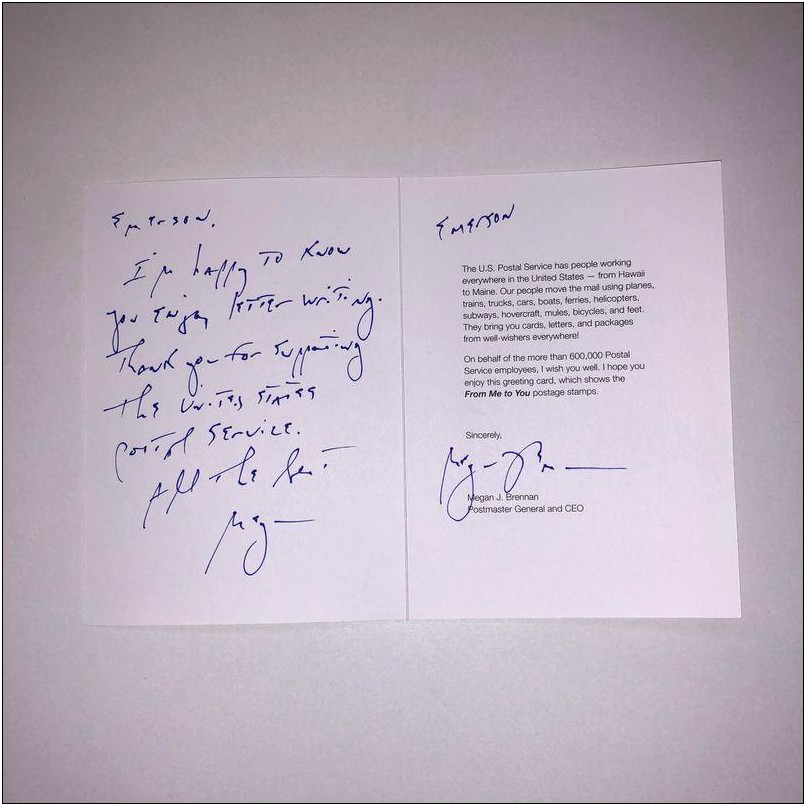 Emerson,
I'm happy to know
you enjoy letter writing.
Thank you for supporting
the United States
Postal Service.
All the best
Meg
EMERSON
The U.S. Postal Service has people working
everywhere in the United States — from Hawaii
to Maine. Our people move the mail using planes,
trains, trucks, cars, boats, ferries, helicopters,
subways, hovercraft, mules, bicycles, and feet.
They bring you cards, letters, and packages
from well-wishers everywhere!
On behalf of the more than 600,000 Postal
Service employees, I wish you well. I hope you
enjoy this greeting card, which shows the
From Me to You postage stamps.
Sincerely,
Meg Bre
Megan J. Brennan
Postmaster General and CEO